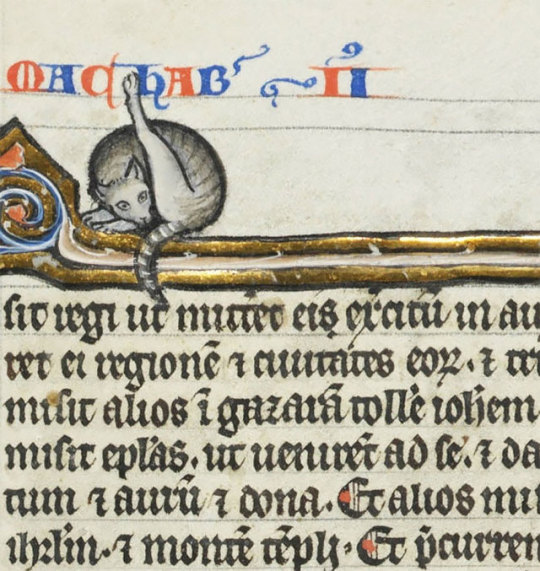 MACHAB' II
sit regi ut mittet eis ex̾citū in au
ret ei regionē ⁊ ciuitates eoꝝ. ⁊ tri
misit alios ī gazarā tollē ioħem
misit ep̄las. ut uenirēt ad se. ⁊ da
tum ⁊ aurū ⁊ dona. Et alios mi
ihrl̄m. ⁊ montē tēpli. Et p̄curren